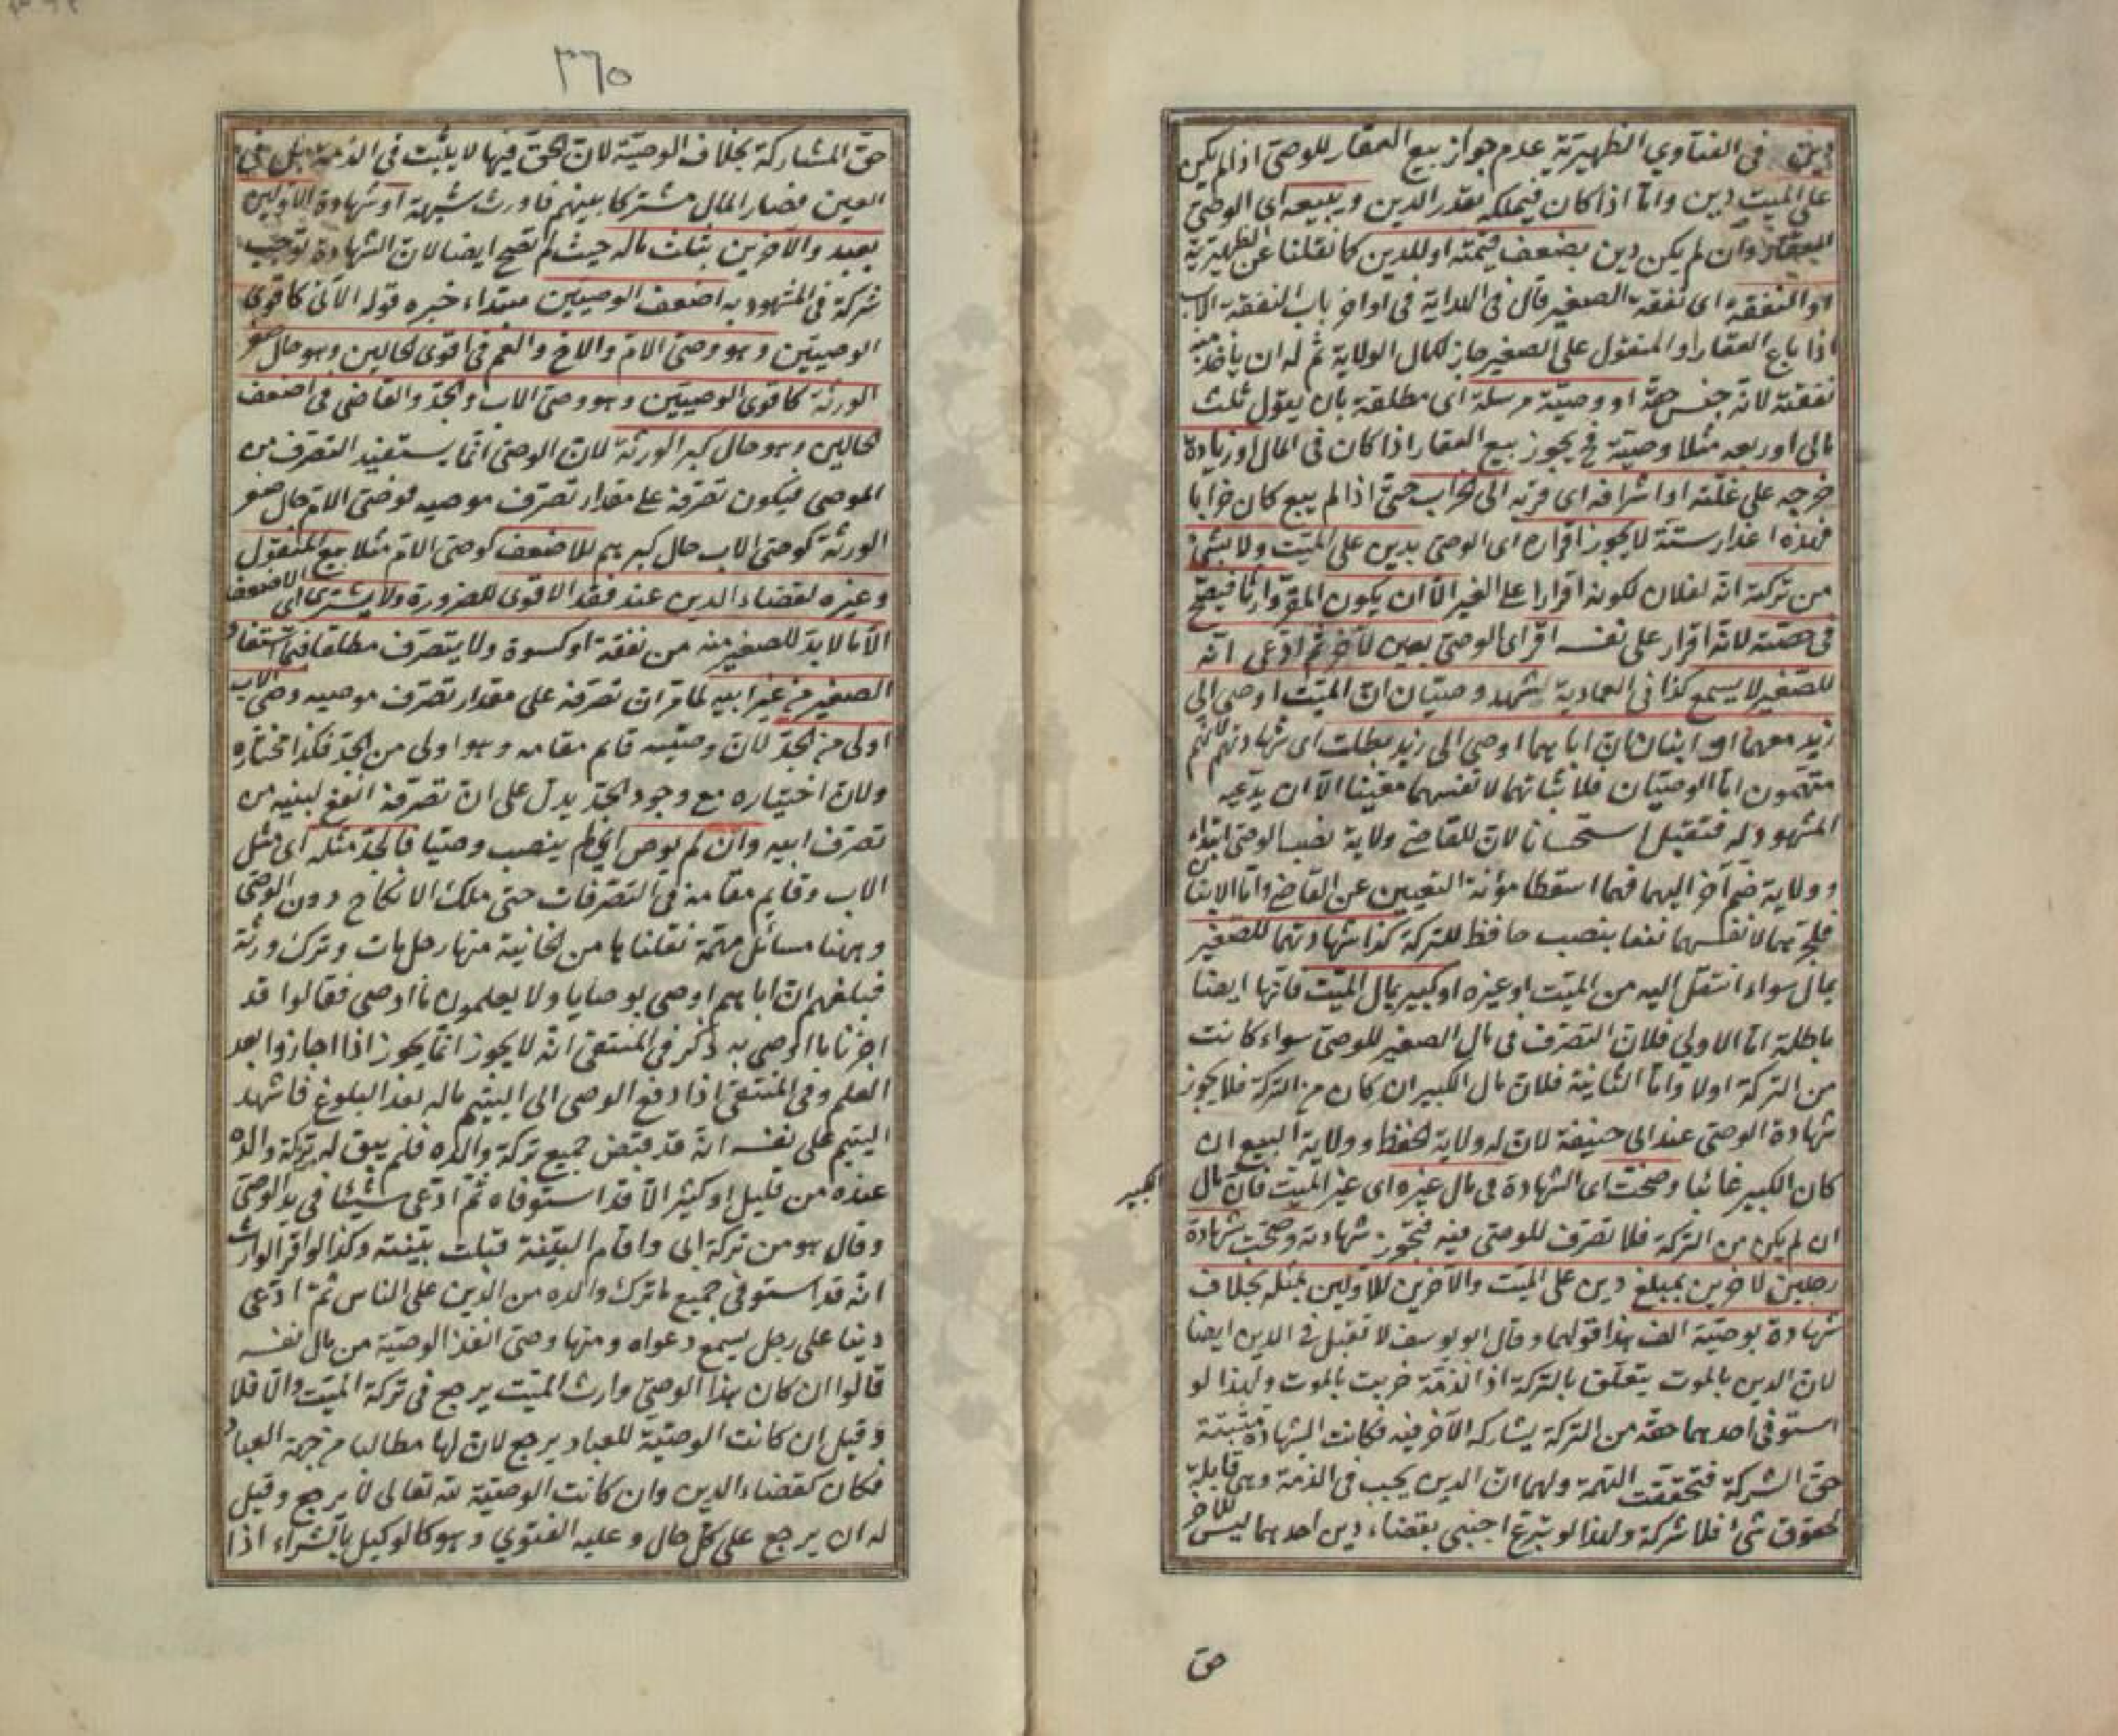 دين في الفتاوي الظهيرية عدم جواز بيع العقار للوصي اذا لم يكن
على الميت دين واما اذا كان فيملكه بقدر الدين ويبيعه اى الوصي
العقار وان لم يكن دين بضعف قيمته او للدين كما نقلنا عن الظهيرية
او النفقه اى نفقة الصغير قال في الهداية في اواخر باب النفقة الاب
اذا باع العقار او المنقول على الصغير جاز لكمال الولاية ثم له ان يأخذ منه
نفقته لانه جنس حقه او وصية مرسلة اى مطلقة بان يقول ثلث
مالى او ربعه مثلا وصية فح يجوز بيع العقار اذا كان في المال او زيادة
خرجه على غلته او اشرافه اى قربه الى الخراب حتى اذا لم يبع كان خرابا
فهذه اعذار ستة لا يجوز اقراره اى الوصي بدين على الميت ولا بشئ
من تركته انه لفلان لكونه اقرارا على الغير الا ان يكون المقر وارثا فيصح
في حصته لانه اقرار على نفسه اقر اى الوصي بعين لآخر ثم ادعى انه
للصغير لا يسمع كذا في العمادية شهد وصيان ان الميت اوصى الى
زيد معهما او ابنان ان اباهما اوصى الى زيد بطلت اى شهادتهم لانهم
متهمون اما الوصيان فلاثباتهما لانفسهما معينا الا ان يدعيه
المشهود له فتقبل استحسانا لان للقاضي ولاية نصب الوصي ابتداء
وولاية ضم آخر اليهما فهما اسقطا مؤنة التعيين عن القاضي واما الابنان
فلجرهما لانفسهما نفعا بنصب حافظ للتركة كذا شهادتهما للصغير
بمال سواء انتقل اليه من الميت او غيره او كبير بمال الميت فانها ايضا
باطلة اما الاولى فلان التصرف في مال الصغير للوصي سواء كانت
من التركة اولا واما الثانية فلان مال الكبير ان كان من التركة فلا يجوز
شهادة الوصي عند ابى حنيفة لان له ولاية الحفظ وولاية البيع ان
كان الكبير غائبا وصحت اى الشهادة في مال غيره اى غير الميت فان مال
الكبير
ان لم يكن من التركة فلا تصرف للوصي فيه فتجوز شهادته وصحت شهادة
رجلين لآخرين بمبلغ دين على الميت والآخرين للاولين بمثله بخلاف
شهادة بوصية الف هذا قولهما وقال ابو يوسف لا تقبل في الدين ايضا
لان الدين بالموت يتعلق بالتركة اذ الذمة خربت بالموت ولهذا لو
استوفى احدهما حقه من التركة يشاركه الآخر فيه فكانت الشهادة مثبتة
حق الشركة فتحققت التهمة ولهما ان الدين يجب في الذمة وهي قابلة
لحقوق شئ فلا شركة ولهذا لو تبرع اجنبي بقضاء دين احدهما ليس للآخر
حق
٣٦٥
حق المشاركة بخلاف الوصية لان الحق فيها لا يثبت في الذمة بل في
العين فصار المال مشتركا بينهم فاورث شبهة او شهادة الاولين
بعبد والآخرين بثلث ماله حيث لم تصح ايضا لان الشهادة توجب
شركة في المشهود به اضعف الوصيين مبتداء خبره قوله الآتى كاقوى
الوصيين وهو وصى الام والاخ والعم في اقوى الحالين وهو حال صغر
الورثة كاقوى الوصيين وهو وصى الاب والجد والقاضى في اضعف
الحالين وهو حال كبر الورثة لان الوصى انما يستفيد التصرف من
الموصى فيكون تصرفه على مقدار تصرف موصيه فوصى الام حال صغر
الورثة كوصى الاب حال كبرهم للاضعف كوصى الام مثلا بيع المنقول
وغيره لقضاء الدين عند فقد الاقوى للضرورة ولا يشترى اى الاضعف
الا ما لا بد للصغير منه من نفقة او كسوة ولا يتصرف مطلقا فيما استفاد
الصغير من غير ابيه لما مر ان تصرفه على مقدار تصرف موصيه وصى الاب
اولى من الجد لان وصيه قايم مقامه وهو اولى من الجد فكذا مختاره
ولان اختياره مع وجود الجد يدل على ان تصرفه انفع لبنيه من
تصرف ابيه وان لم يوص اى لم ينصب وصيا فالجد مثله اى مثل
الاب وقايم مقامه في التصرفات حتى ملك الانكاح دون الوصى
وههنا مسائل مهمة نقلناها من الخانية منها رجل مات وترك ورثة
فبلغهم ان اباهم اوصى بوصايا ولا يعلمون ما اوصى فقالوا قد
اجزنا ما اوصى به ذكر في المنتقى انه لا يجوز انما يجوز اذا اجازوا بعد
العلم وفي المنتقى اذا دفع الوصى الى اليتيم ماله بعد البلوغ فاشهد
اليتيم على نفسه انه قد قبض جميع تركة والده فلم يبق له تركة والده
عنده من قليل او كثير الا قد استوفاه ثم ادعى شيئا في يد الوصى
وقال هو من تركة ابى واقام البينة قبلت بينته وكذا لو اقر الوارث
انه قد استوفى جميع ما ترك والده من الدين على الناس ثم ادعى
دينا على رجل يسمع دعواه ومنها وصى انفذ الوصية من مال نفسه
قالوا ان كان هذا الوصى وارث الميت يرجع في تركة الميت والا فلا
وقيل ان كانت الوصية للعباد يرجع لان لها مطالبا من جهة العباد
فكان كقضاء الدين وان كانت الوصية لله تعالى لا يرجع وقيل
له ان يرجع على كل حال وعليه الفتوي وهو كالوكيل بالشراء اذا